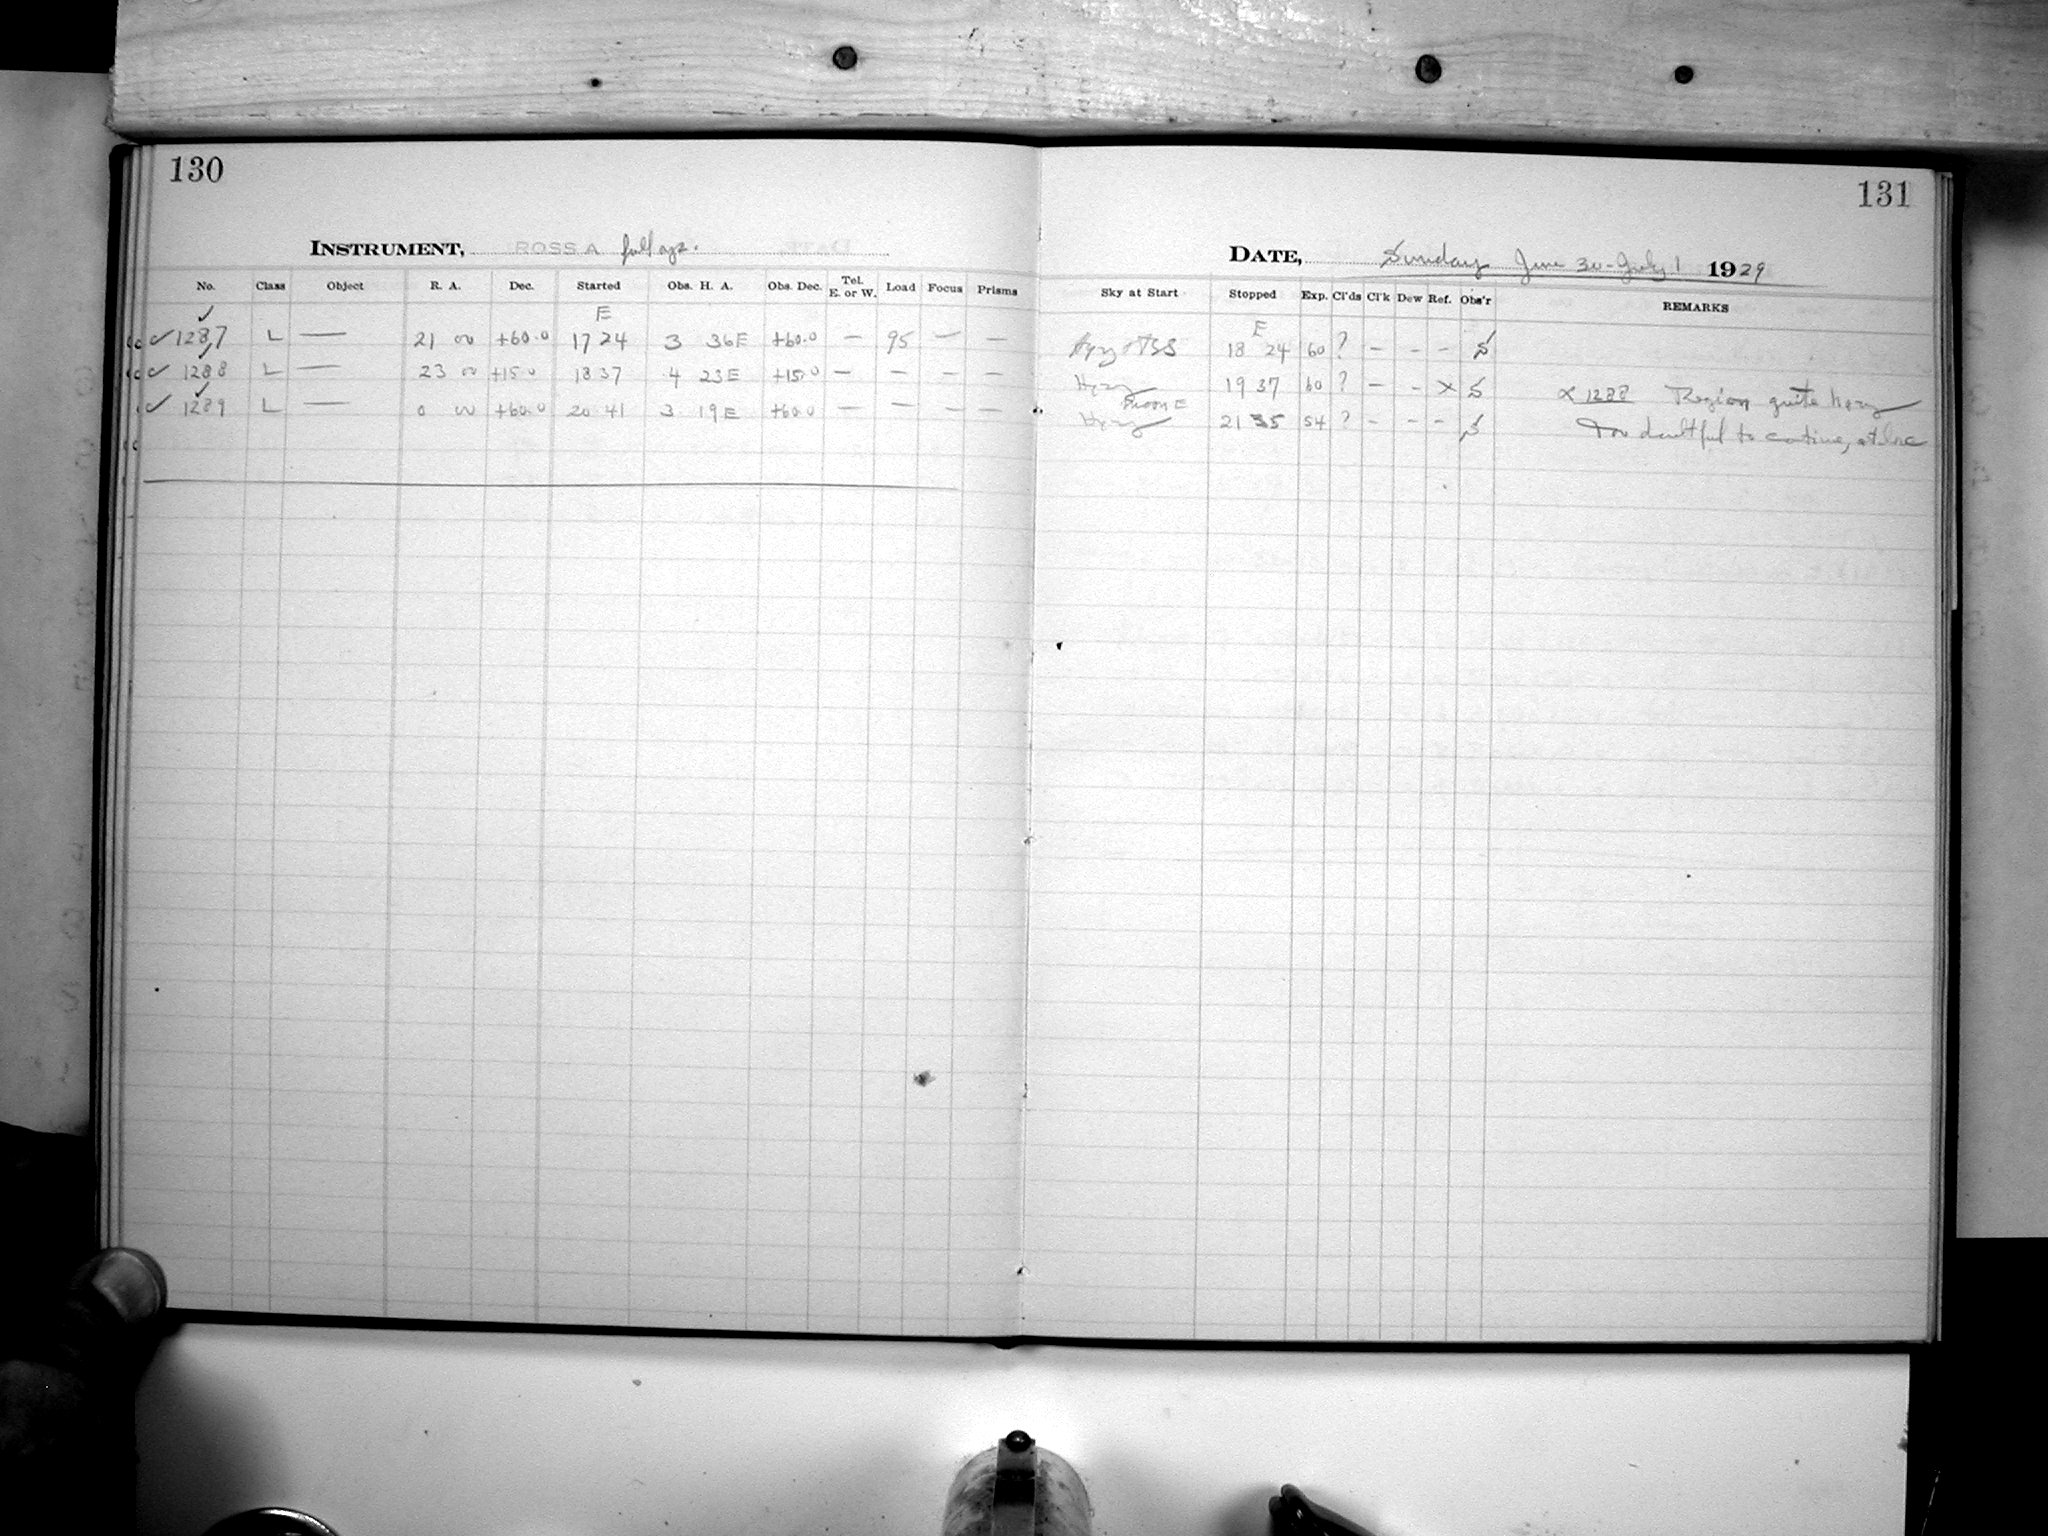 130
INSTRUMENT, ROSS A full ap.
No. Class Object R. A. Dec. Started Obs. H. A. Obs. Dec. Tel. E. or W. Load Focus Prisms
E
1287 L — 21 00 +60.0 17 24 3 36E +60.0 — 95 — —
1288 L — 23 00 +15.0 18 37 4 23E +15.0 — — — —
1289 L — 0 00 +60.0 20 41 3 19E +60.0 — — — —
131
DATE, Sunday June 30 - July 1 1929
Sky at Start Stopped Exp. Cl'ds Cl'k Dew Ref. Obs'r REMARKS
E
Hazy 18 24 60 ? - - - S
Hazy 19 37 60 ? - - X S X 1288 Region quite hazy
Moon E
Hazy 21 35 54 ? - - - S Too doubtful to continue,